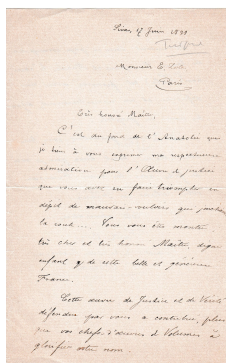 Sivas, 17 Juin 1899
Monsieur E.
Paris
Très honoré Maître,
C'est du fond de l'Anatolie que
je tiens à vous exprimer ma respectueuse
admiration pour l'Œuvre de justice
que vous avez su faire triompher en
dépit de mauvais vouloirs que
la
très cher et très honoré Maître, digne
enfant de cette belle et généreuse
France.
Cette œuvre de Justice et de Vérité
défendue par vous a contribué, plus
que vos chefs-d'œuvres à
glorifier votre nom.